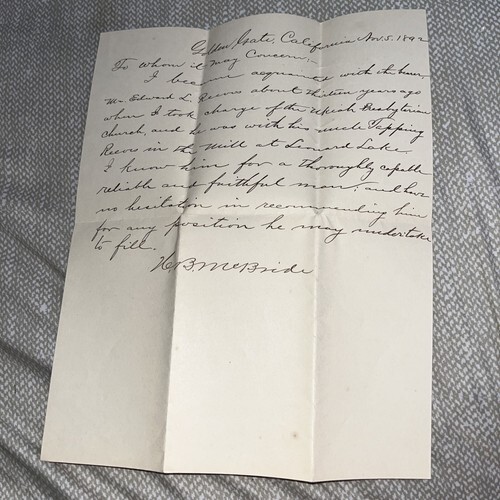 Golden Gate, California Nov. 5. 1892
To whom it may Concern:—
I became acquainted with the bearer,
Mr Edward L. Reeves about thirteen years ago
when I took charge of the Ukiah Presbyterian
church, and he was with his uncle Tapping
Reeves in the Mill at Leonard Lake.
I know him for a thoroughly capable
reliable and faithful man; and have
no hesitation in recommending him
for any position he may undertake
to fill.
H. B. McBride